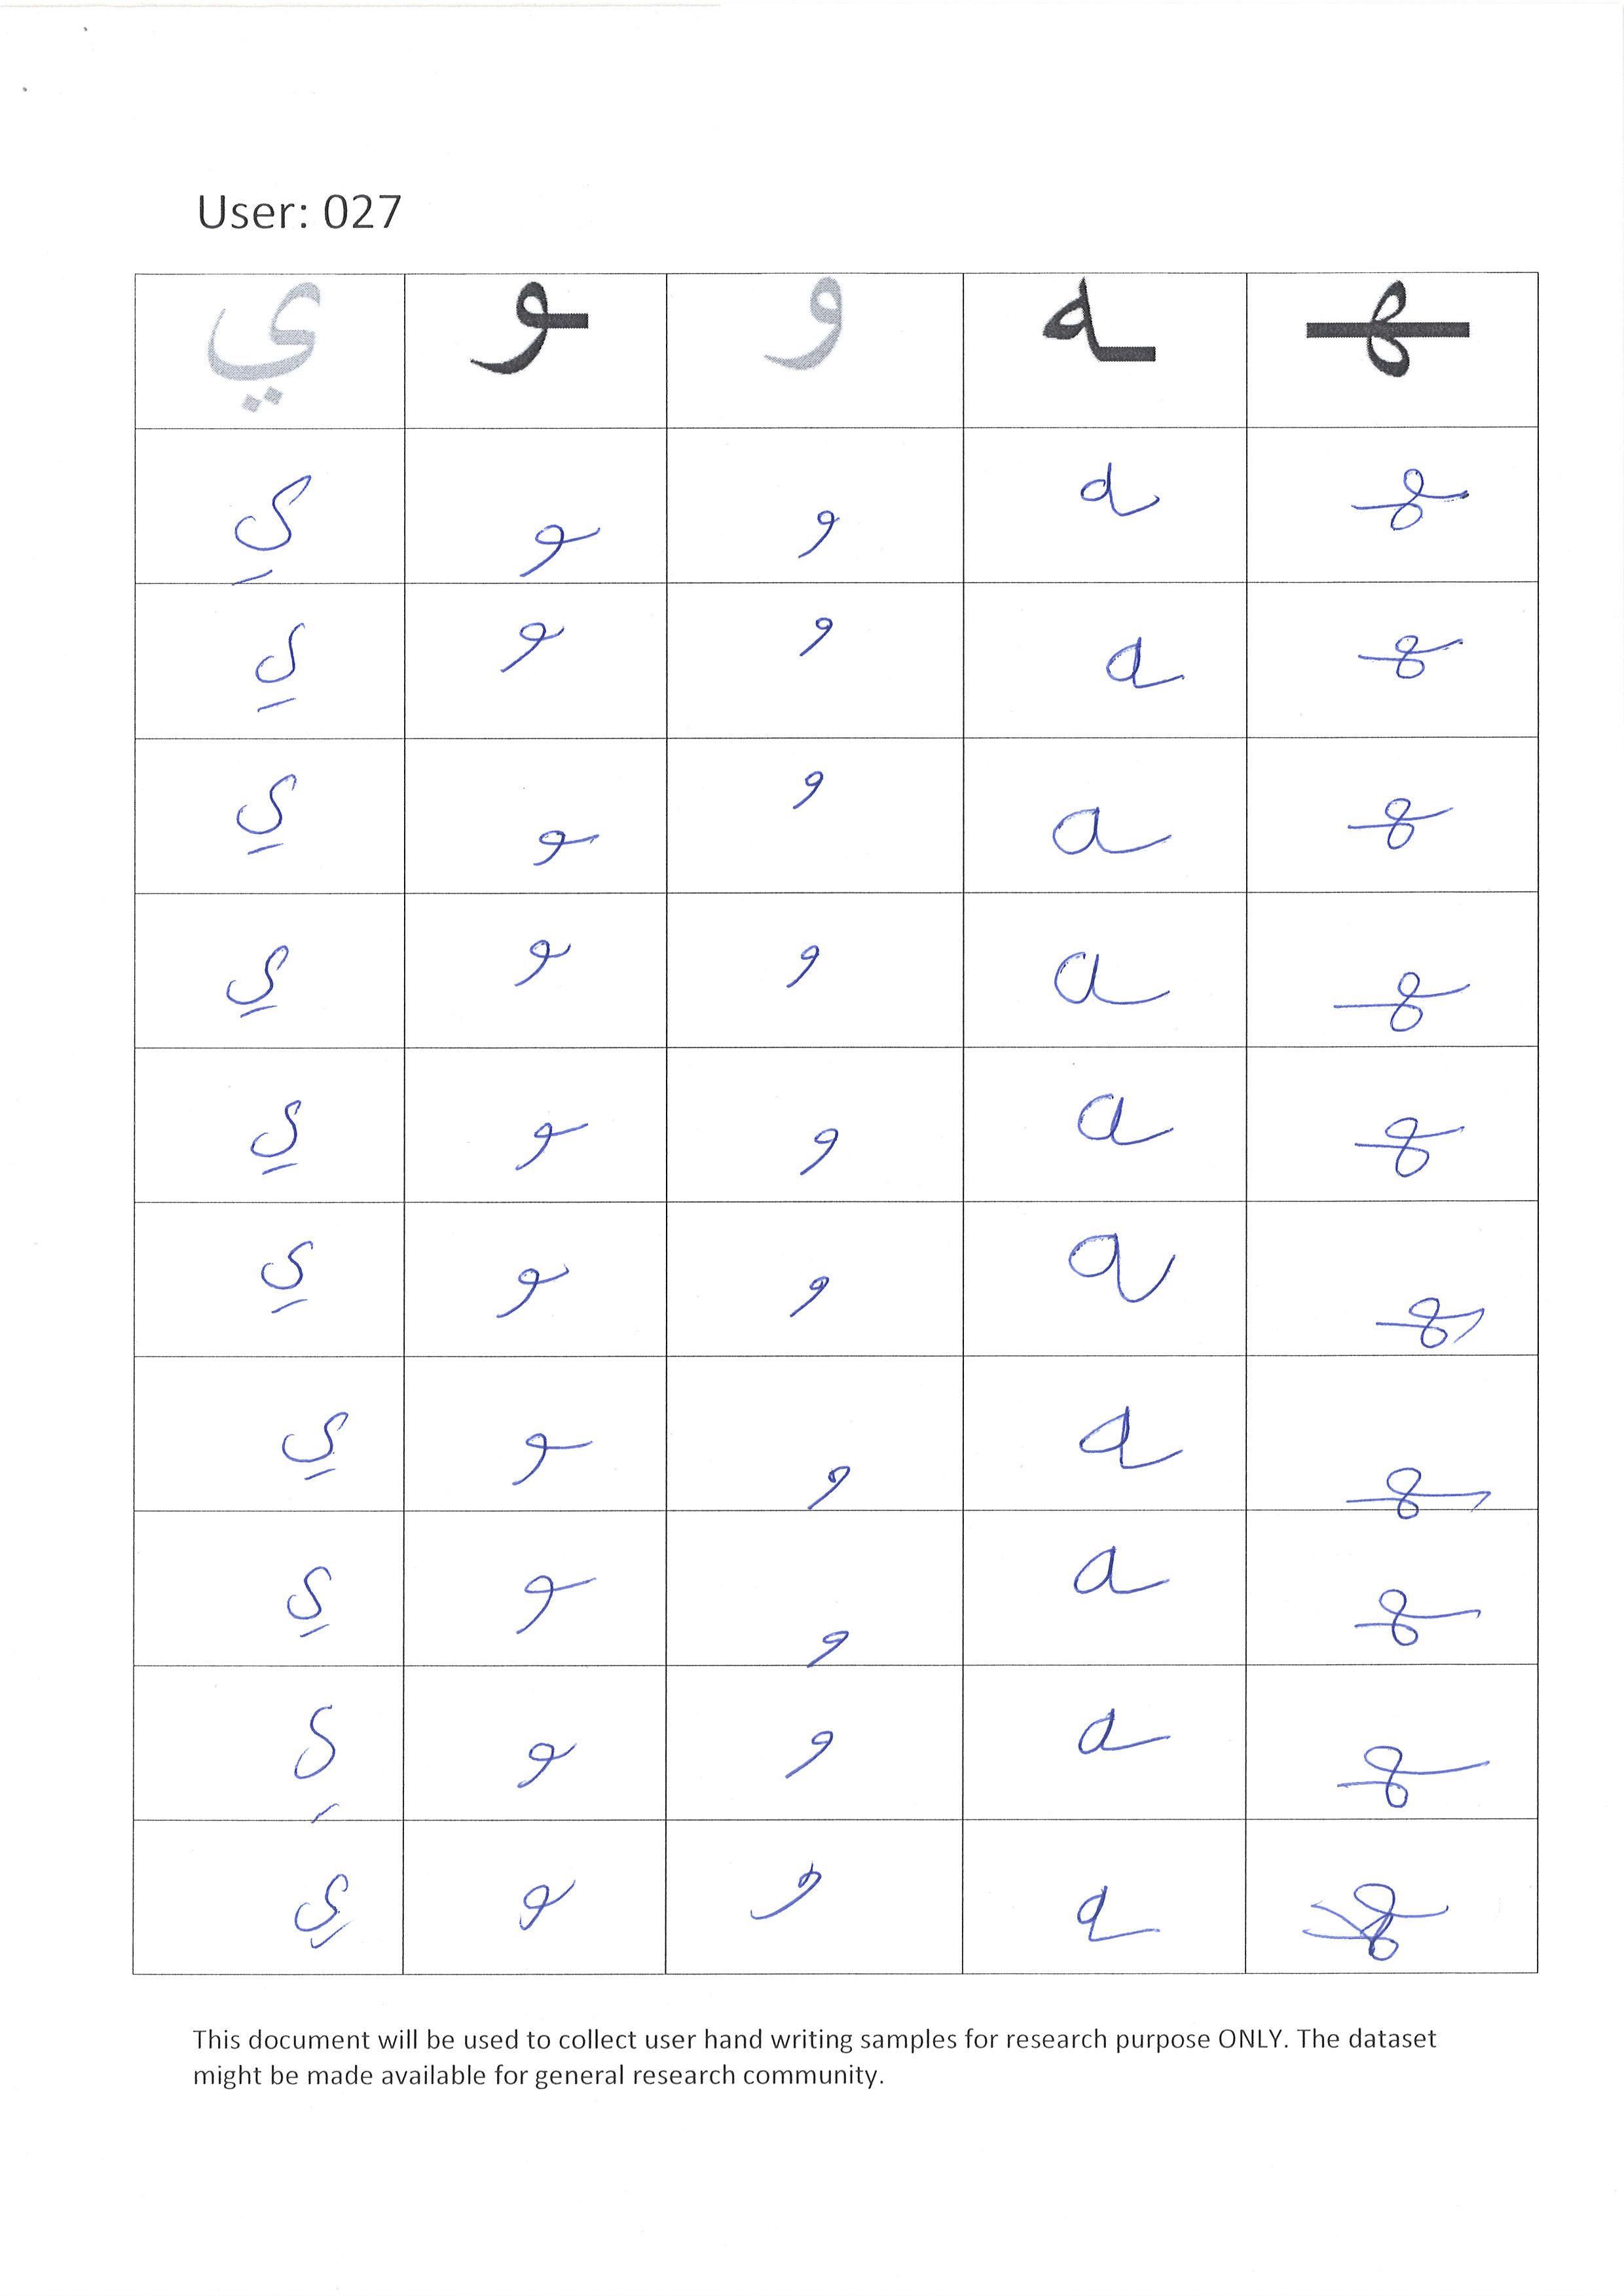 User: 027
ي ـو و ـه ـهـ
ي ـو و ـه ـهـ
ي ـو و ـه ـهـ
ي ـو و ـه ـهـ
ي ـو و ـه ـهـ
ي ـو و ـه ـهـ
ي ـو و ـه ـهـ
ي ـو و ـه ـهـ
ي ـو و ـه ـهـ
ي ـو و ـه ـهـ
ي ـو و ـه ـهـ
This document will be used to collect user hand writing samples for research purpose ONLY. The dataset
might be made available for general research community.